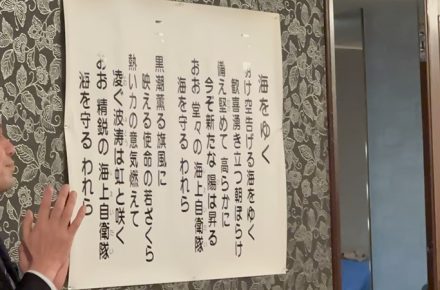 海をゆく
明け空告げる海をゆく
歓喜湧き立つ朝ぼらけ
備え堅めて高らかに
今ぞ新たな陽は昇る
おお 堂々の海上自衛隊
海を守る われら
黒潮薫る旗風に
映える使命の若ざくら
熱い力の意気燃えて
凌ぐ波涛は虹と咲く
おお 精鋭の海上自衛隊
海を守る われら